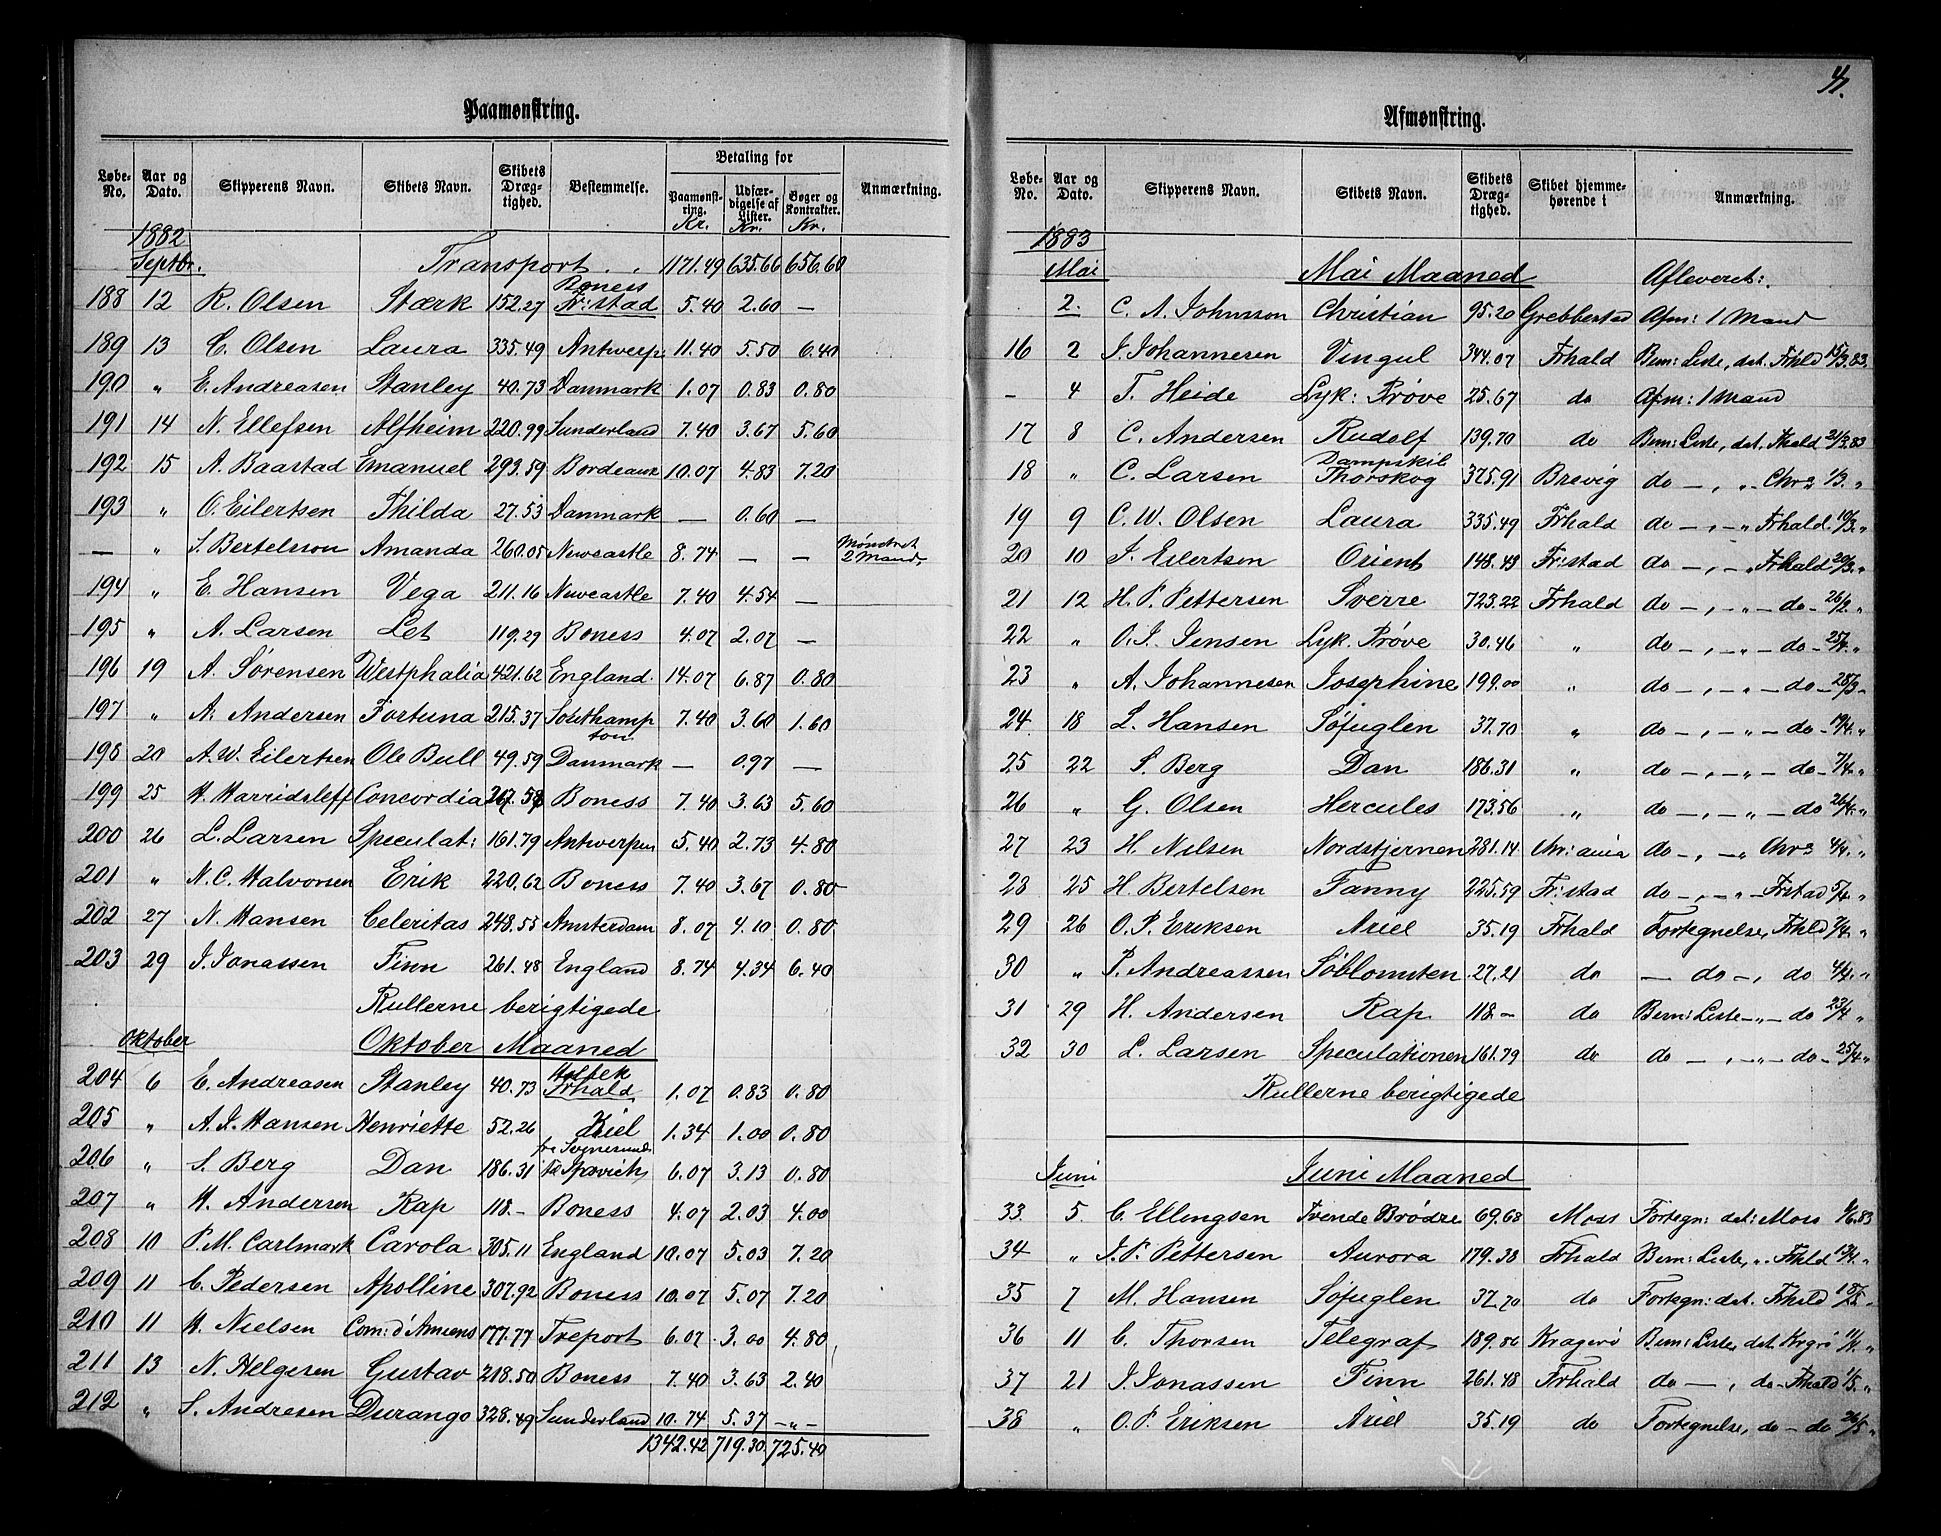 Paamønstring.
Løbe-No. Aar og Dato. Skipperens Navn. Skibets Navn. Skibets Dræg-tighed. Bestemmelse. Betaling for Anmærkning.
Paamønst-ring. Udfær-digelse af Lister. Bøger og Kontrakter.
Kr. Kr. Kr.
1882
Septbr. Transport . . 1171.49 635.66 656.60
188 12 R. Olsen Stærk 152.27 Boness Fr:stad 5.40 2.60 —
189 13 C. Olsen Laura 335.49 Antwerp. 11.40 5.50 6.40
190 " E. Andreasen Stanley 40.73 Danmark 1.07 0.83 0.80
191 14 N. Ellefsen Alfheim 220.99 Sunderland 7.40 3.67 5.60
192 15 A. Baastad Emanuel 293.59 Bordeaux 10.07 4.83 7.20
193 " O. Eilertsen Thilda 27.53 Danmark — 0.60 —
— " S. Bertelsson Amanda 260.05 Newcastle 8.74 — — Mønstret 2 Mand,
194 " E. Hansen Vega 211.16 Newcastle 7.40 4.54 —
195 " A. Larsen Let 119.29 Boness 4.07 2.07 —
196 19 A. Sørensen Westphalia 421.62 England. 14.07 6.87 0.80
197 " A. Andersen Fortuna 215.37 Southampton 7.40 3.60 1.60
198 20 A. W. Eilertsen Ole Bull 49.59 Danmark — 0.97 —
199 25 H. Harridsleff Concordia Boness 7.40 3.63 5.60
200 26 L. Larsen Speculat: 161.79 Antwerpen 5.40 2.73 4.80
201 " N. C. Halvorsen Erik 220.62 Boness 7.40 3.67 0.80
202 27 N. Hansen Celeritas 248.55 Amsterdam 8.07 4.10 0.80
203 29 J. Jonassen Finn 261.48 England 8.74 4.34 6.40
Rullerne berigtigede
Oktober Oktober Maaned
204 6 E. Andreasen Stanley 40.73 Frhald 1.07 0.83 0.80
205 " A. J. Hansen Henriette 52.26 Kiel 1.34 1.00 0.80
206 " S. Berg Dan 186.31 6.07 3.13 0.80
207 " H. Andersen Rap 118.– Boness 4.07 2.03 4.00
208 10 P. M. Carlmark Carola 305.11 England 10.07 5.03 7.20
209 11 C. Pedersen Apolline 307.92 Boness 10.07 5.07 7.20
210 11 H. Nielsen Com: d'Amiens 177.77 Treport 6.07 3.00 4.80
211 13 N. Helgesen Gustav 218.50 Boness 7.40 3.63 2.40
212 " S. Andresen Durango 328.49 Sunderland 10.74 5.37 — " —
1342.42 719.30 725.40
41.
Afmønstring.
Løbe-No. Aar og Dato. Skipperens Navn. Skibets Navn. Skibets Dræg-tighed. Skibet hjemme-hørende i Anmærkning.
1883
Mai Mai Maaned Afleveret:
2. C. A. Johnsson Christian 95.20 Grebbestad Afm: 1 Mand
16 2 J. Johannesen Vingul 344.07 Frhald Bem: Liste, dat. Frhld 15/3.83.
- 4 T. Heide Lyk: Prøve 25.67 do Afm: 1 Mand
17 8 C. Andersen Rudolf 139.70 do Bem: Liste, dat. Frhald 21/3.83
18 " C. Larsen Dampskib Thorskog 375.91 Brevig do — , " Chra 1/3. "
19 9 C. W. Olsen Laura 335.49 Frhald do — , — " Frhald 10/3. "
20 10 J. Eilertsen Orient 148.43 Fr:stad do — , — " Frhald 20/3. "
21 12 H. P. Pettersen Sverre 723.22 Frhald do — , — " — do — 26/2. "
22 " O. J. Jensen Lyk. Prøve 30.46 " do — , — " — do — 25/4. "
23 " A. Johannesen Josephine 199.00 " do — , — " — do — 28/3 "
24 18 L. Hansen Søfuglen 37.70 " do — , — " — do — 19/4. "
25 22 S. Berg Dan 186.31 " do — , — " — do — 7/4. "
26 " G. Olsen Hercules 173.56 " do — , — " — do 26/4. "
27 23 H. Nilsen Nordstjernen 281.14 Chr:ania do — , — " Chra 4/4. "
28 25 H. Bertelsen Fanny 225.59 Fr:stad do — , — " — Frstad 5/4 "
29 26 O. P. Eriksen Ariel 35.19 Frhald Fortegnelse, Frhld 7/4. "
30 " P. Andreassen Søblomsten 27.21 do — do — , do 4/4. "
31 29 H. Andersen Rap 118 — do Bem: Liste — " — do 23/4 "
32 30 L. Larsen Speculationen 161.79 do do — , — " — do — 25/4 "
Rullerne berigtigede
Juni Juni Maaned
33 5. C. Ellingsen Tvende Brødre 69.68 Moss Fortegn: dat: Moss
34 " J. P. Pettersen Aurora 179.38 Frhald Bem: Liste, " Frhld 13/4. "
35 7 M. Hansen Søfuglen 37.70 do Fortegn: dat. Frhald
36 11 C. Thorsen Telegraf 189.86 Kragerø Bem: Liste, dat. Krgrø
37 21 J. Jonassen Finn 261.48 Frhald do — , do — Frhald 1/5. "
38 " O. P. Eriksen Ariel 35.19 do Fortegnelse, do — do 26/5 "